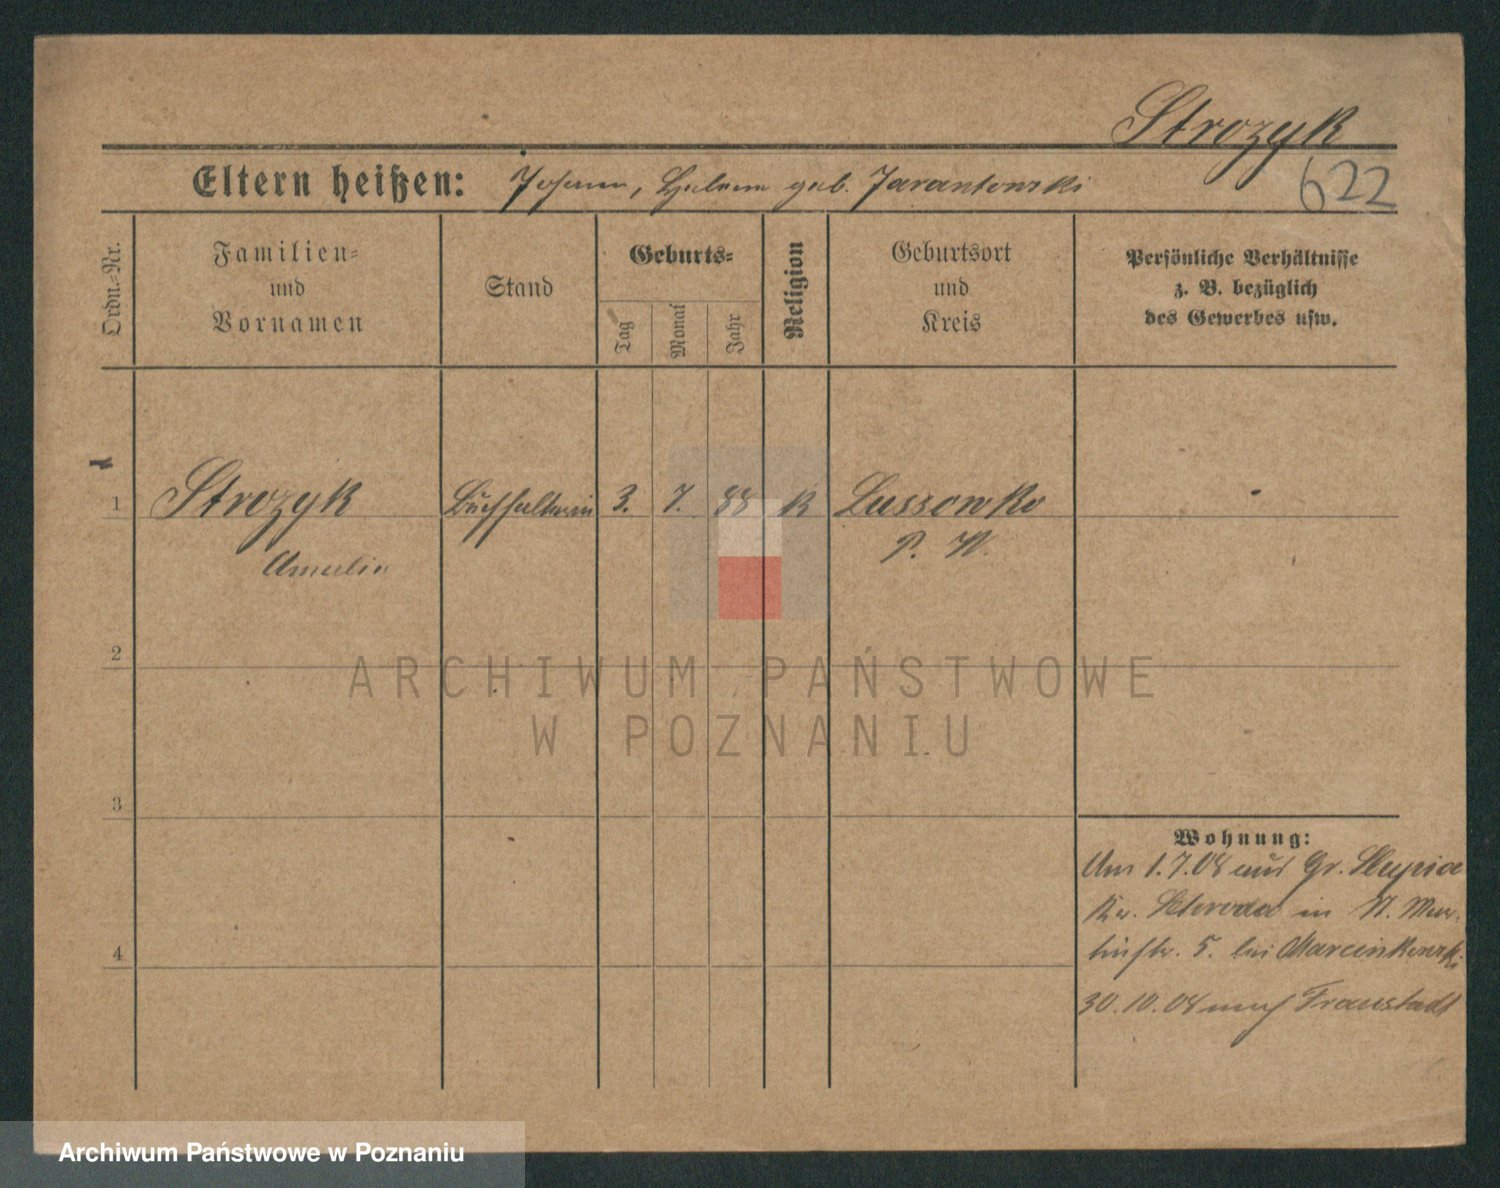 Strozyk
622
Eltern heißen: Johann, Helene geb. Jarantowski
Ordn.-Nr.
Familien-
und
Vornamen
Stand
Geburts-
Tag
Monat
Jahr
Religion
Geburtsort
und
Kreis
Persönliche Verhältnisse
z. B. bezüglich
des Gewerbes usw.
1
Strozyk Buchhalterin 3. 7. 88 k Lussowko
Amelie P. W.
2
ARCHIWUM PAŃSTWOWE
W POZNANIU
3
Wohnung:
Am 1.7.08 aus Gr. Slupia
Kr. Schroda in St. Mar-
tinstr. 5. bei Marcinkowski
30.10.08 nach Fraustadt
4
Archiwum Państwowe w Poznaniu